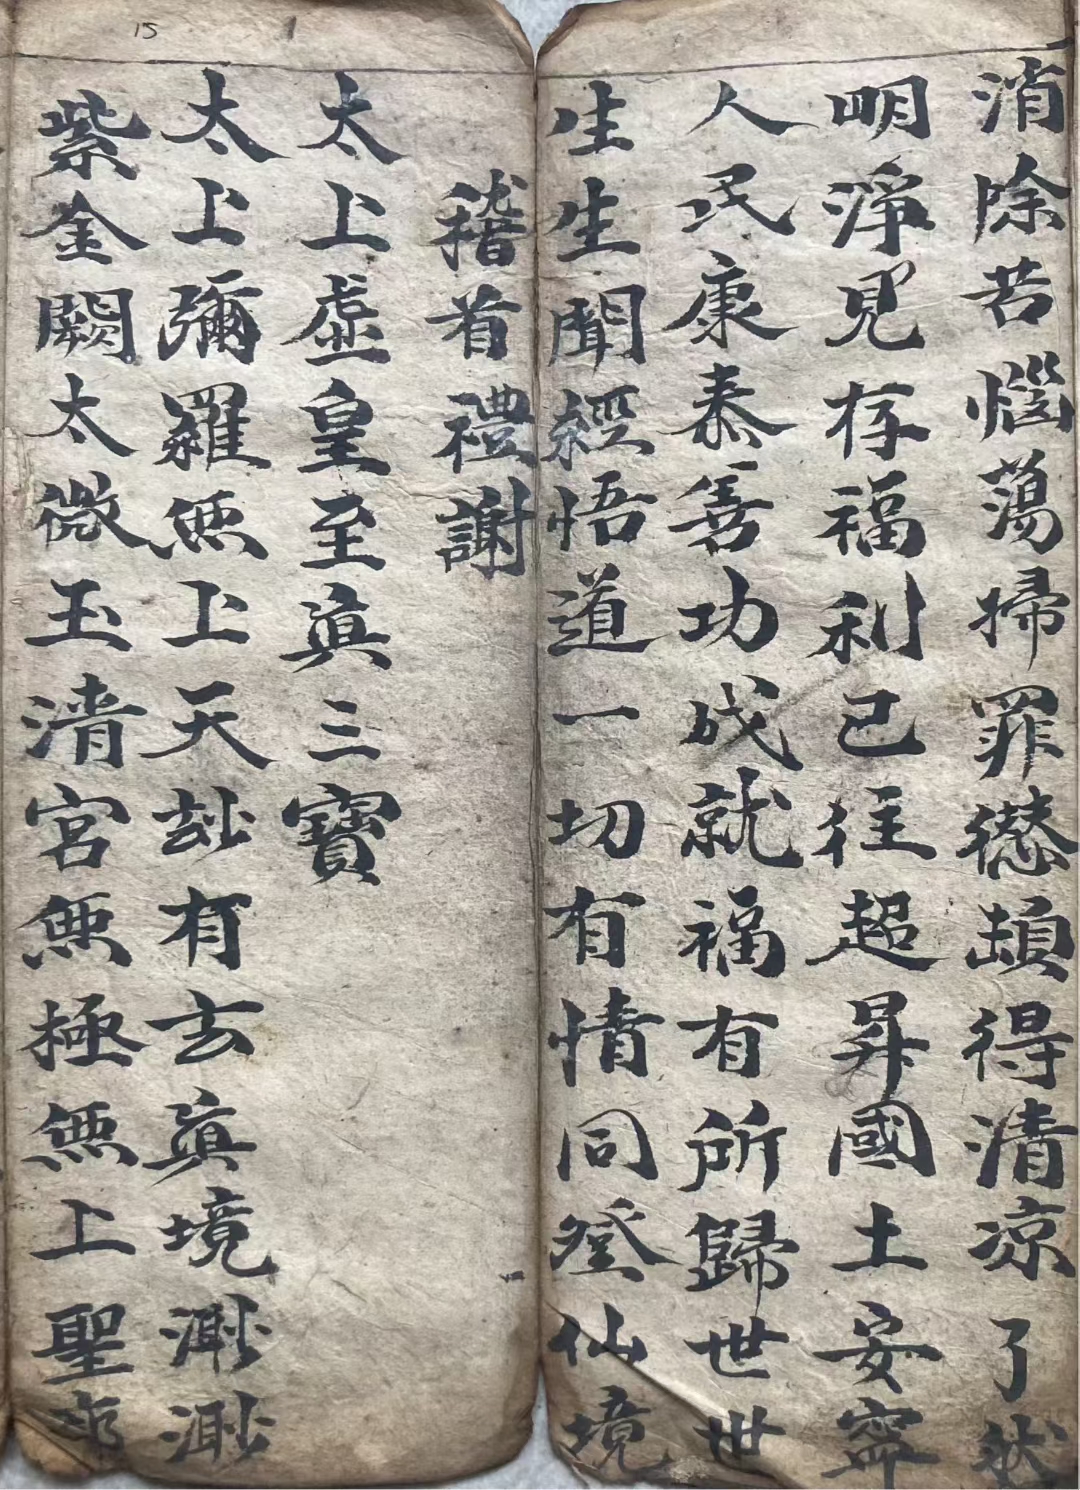 消除苦惱蕩掃罪愆頓得清凉了然
明淨見存福利已往超昇國土安寧
人民康泰善功成就福有所歸世世
生生聞經悟道一切有情同登仙境
稽首禮謝
太上虛皇至真三寶
太上彌羅無上天玅有玄真境渺渺
紫金闕太微玉清宮無極無上聖
15